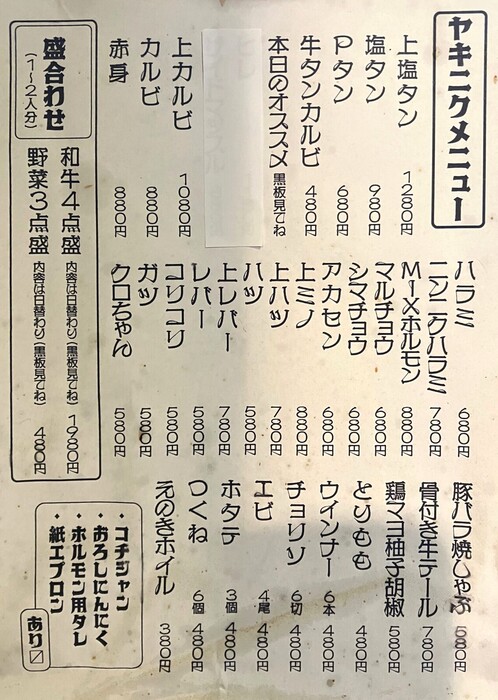 ヤキニクメニュー
上塩タン 1280円
塩タン 980円
Pタン 680円
牛タンカルビ 480円
本日のオススメ 黒板見てね
上カルビ 1080円
カルビ 880円
赤身 880円
ハラミ 680円
ニンニクハラミ 780円
MIXホルモン 880円
マルチョウ 680円
シマチョウ 680円
アカセン 680円
上ミノ 880円
上ハツ 780円
ハツ 580円
上レバー 780円
レバー 580円
コリコリ 580円
ガツ 580円
クロちゃん 580円
豚バラ焼しゃぶ 580円
骨付き牛テール 780円
鶏マヨ柚子胡椒 580円
とりもも 480円
ウインナー 6本 480円
チョリソ 6切 480円
エビ 4尾 480円
ホタテ 3個 480円
つくね 6個 480円
えのきホイル 380円
盛合わせ
(1〜2人分)
和牛4点盛 内容は日替わり(黒板見てね) 1980円
野菜3点盛 内容は日替わり(黒板見てね) 480円
・コチジャン
・おろしにんにく
・ホルモン用タレ
・紙エプロン
あり〼